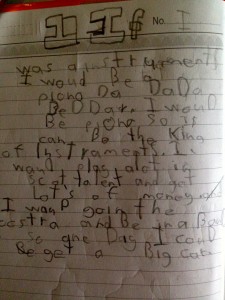 No. I
was an instruments
I woud Be a
piano Da DaDa
Be DDar. I woud
Be piano so is
can Be the King
of instraments. I
woud play alot in
scottalent and get
lots of money
I woud goin the
costra and Be in a Bad
so one Day I coud
Be get a Big Cat